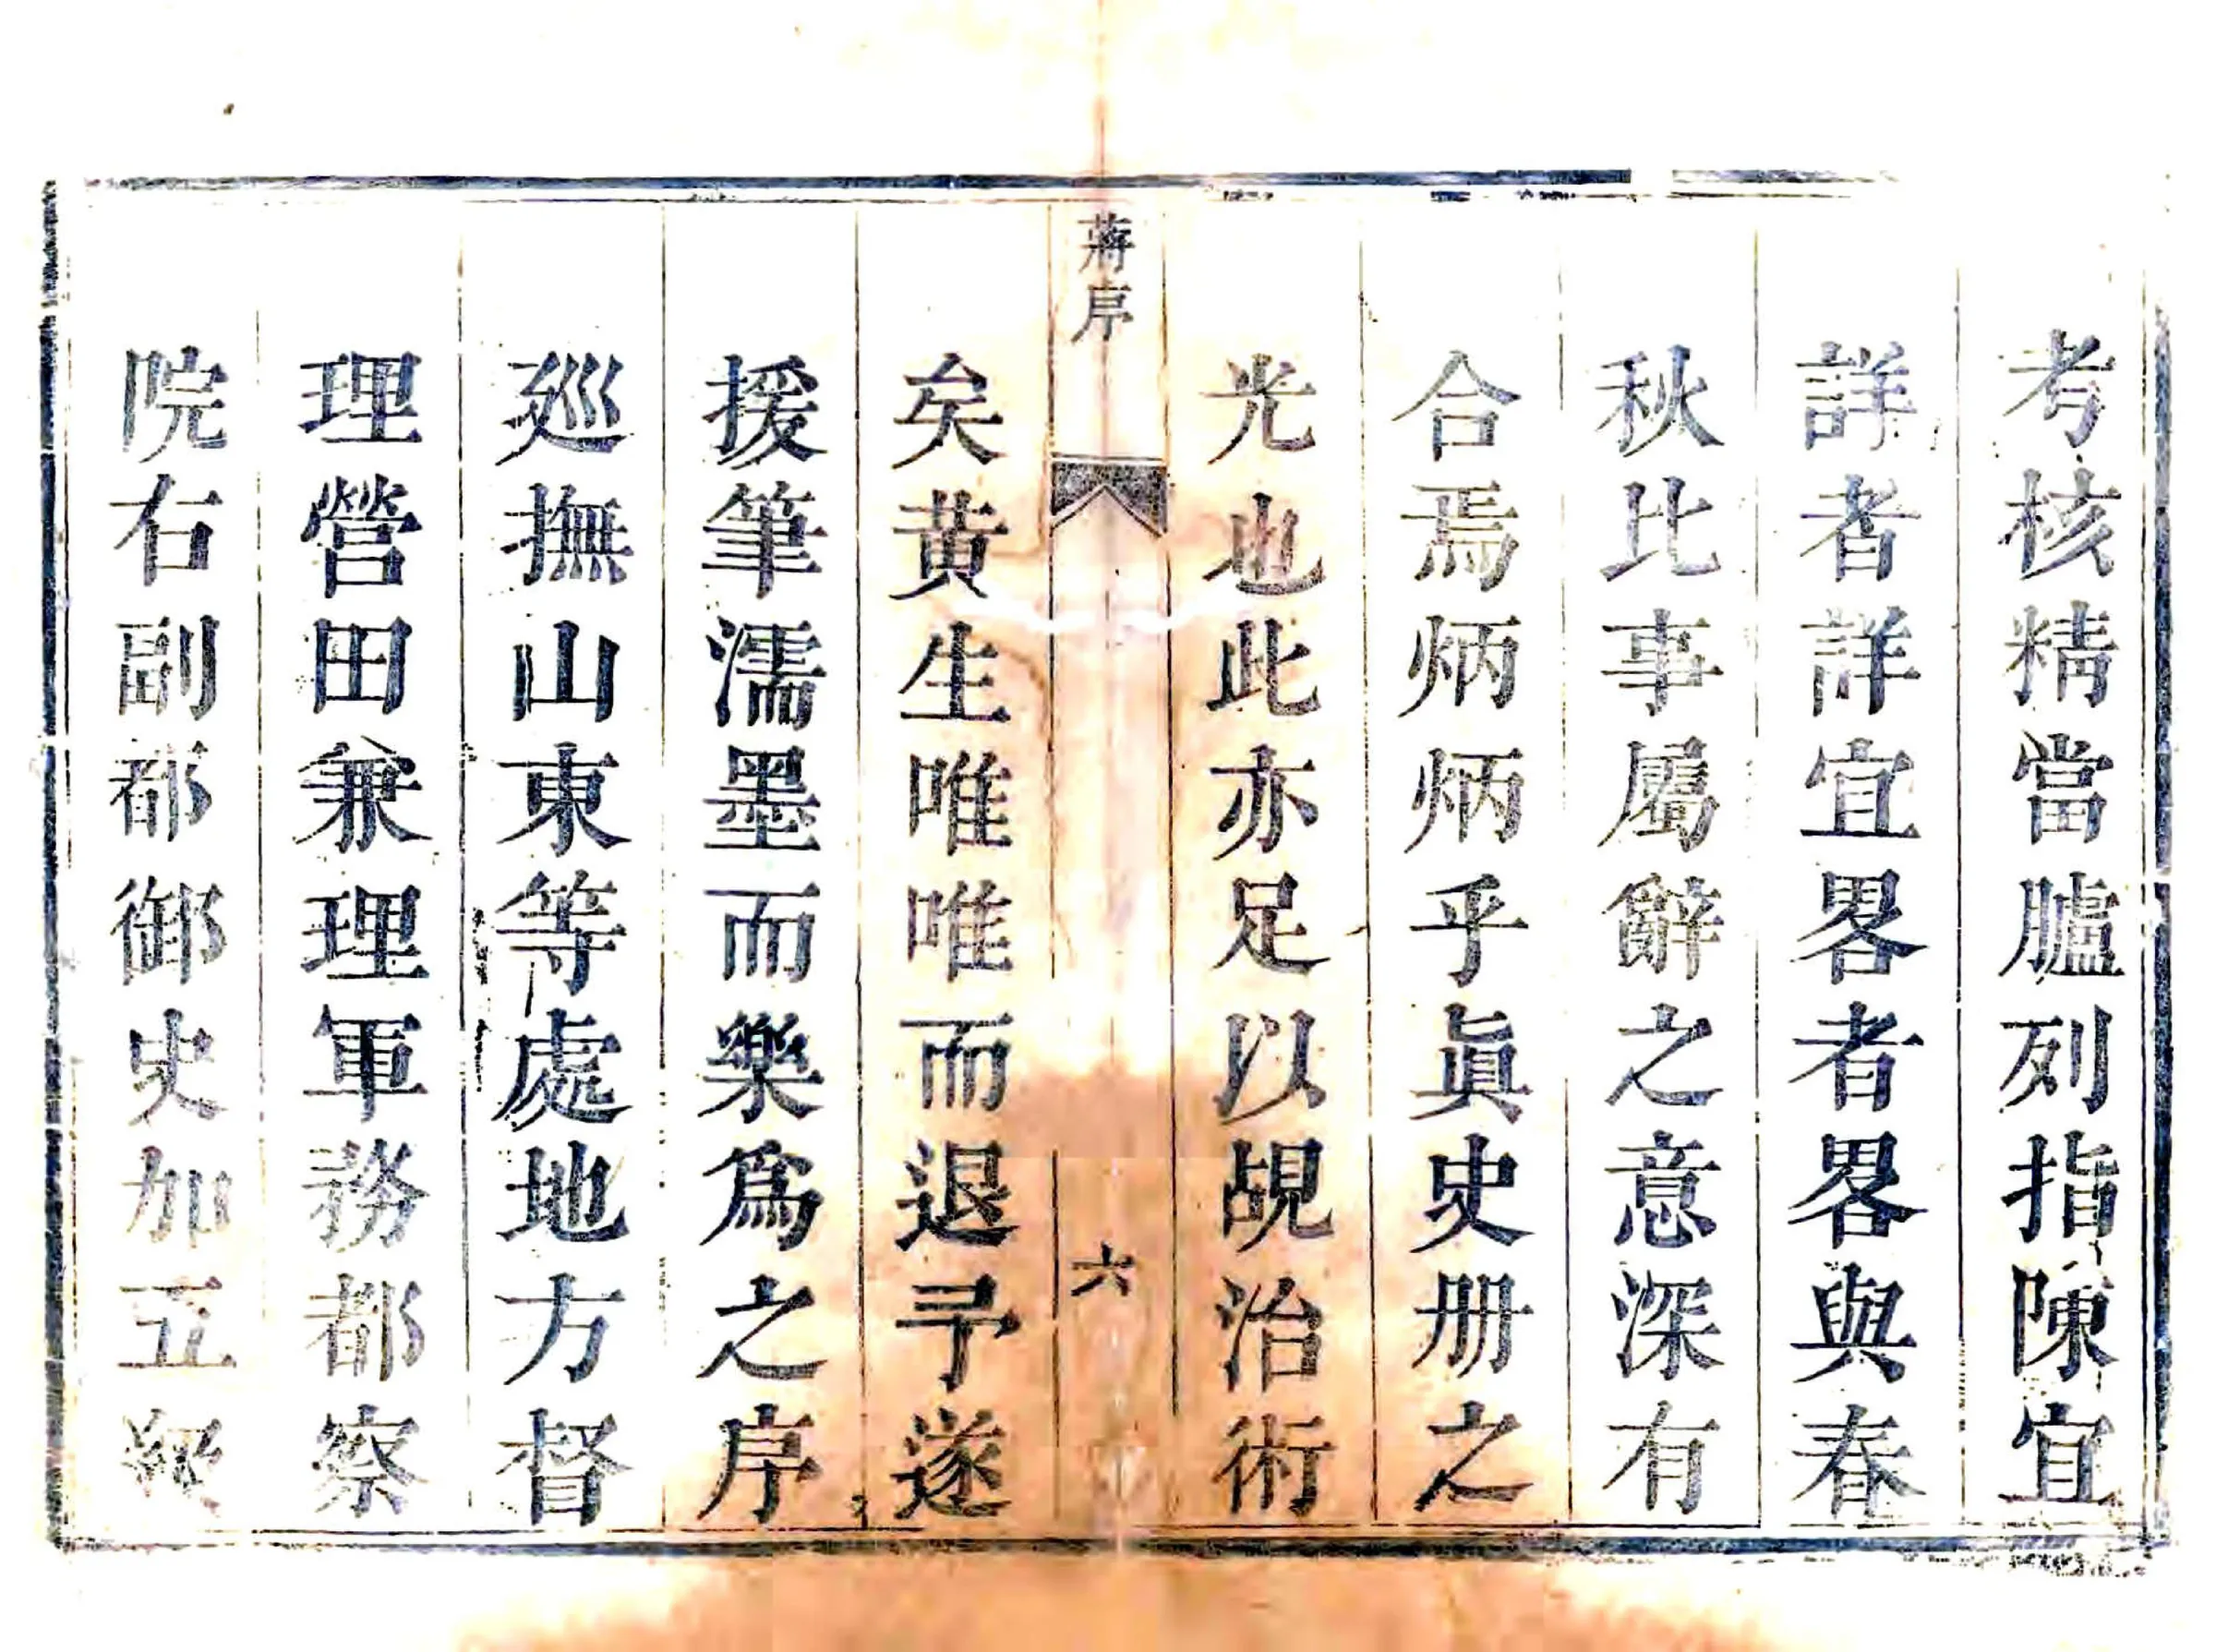 考核精當臚列指陳宜
詳者詳宜畧者畧與春
秋比事屬辭之意深有
合焉炳炳乎眞史册之
光也此亦足以覘治術
蔣序
六
矣黄生唯唯而退予遂
援筆濡墨而樂爲之序
廵撫山東等處地方督
理營田兼理軍務都察
院右副都御史加五級